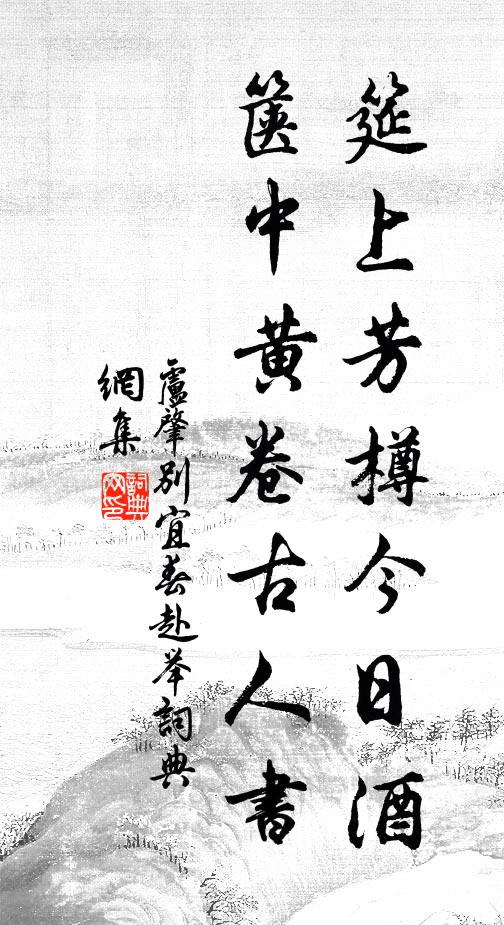 筵上芳樽今日酒
篋中黃卷古人書
盧肇別宜春赴举詞典
網集
詞典
网印